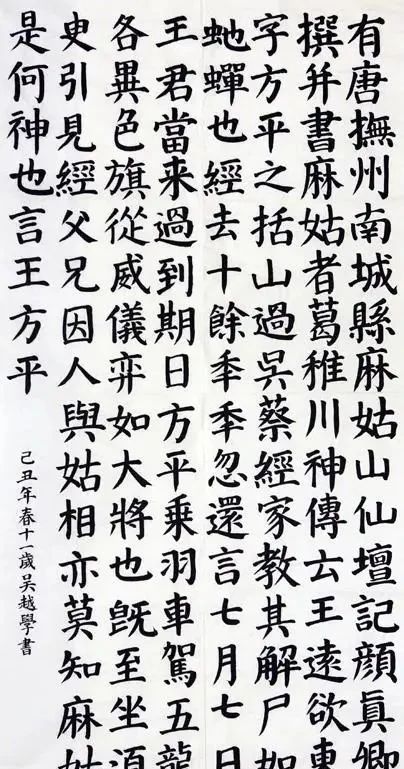 有唐撫州南城縣麻姑山仙壇記顏真卿
撰并書麻姑者葛稚川神傳云王遠欲東
字方平之括山過吳蔡經家教其解尸如
虵蟬也經去十餘秊秊忽還言七月七日
王君當来過到期日方平乗羽車駕五龍
各異色旗從威儀弈如大將也旣至坐須
臾引見經父兄因人與姑相亦莫知麻姑
是何神也言王方平
己丑年春十一歲吳越學書